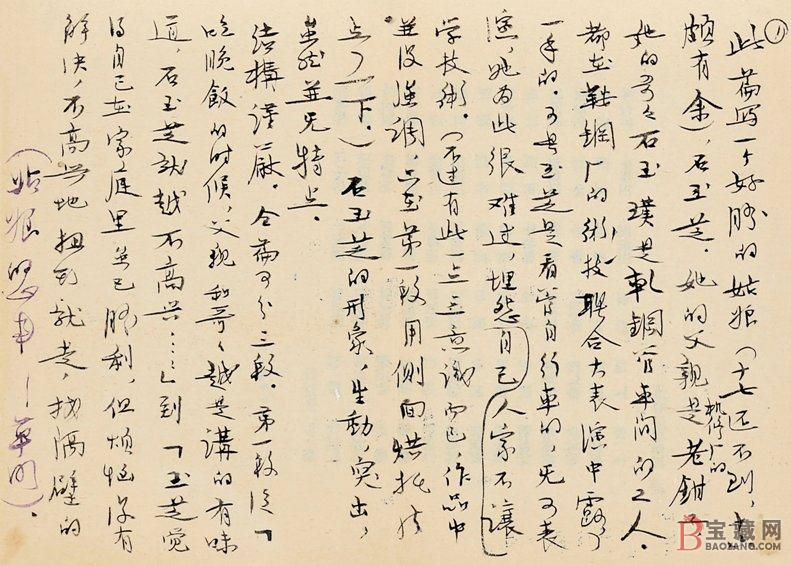 ①
此篇写一个好胜的姑娘(十七还不到,十六
颇有余),石玉芝。她的父亲是机修厂的老钳工
她的哥々石玉璞是軋鋼管车间的工人。
都在鞍鋼厂的術技联合大表演中露了
一手的。可是玉芝是看管自行车的,无可表
演,她为此很难过,埋怨自己人家不讓
学技術。(不过有此一点主意識而已,作品中
並没强調,在第一段用侧面烘托
点了一下。)石玉芝的形象,生動,突出,
虽然並无特点。
结構謹嚴。全篇可分三段。第一段从「
吃晚飯的时候,父親和哥々越是講的有味
道,石玉芝就越不高兴……」到「玉芝觉
得自己在家庭里虽已胜利,但烦恼没有
解决,不高兴地扭到就走,找隔壁的
(姑娘的心事—草明)。
B 宝藏网
BAOZANG.COM